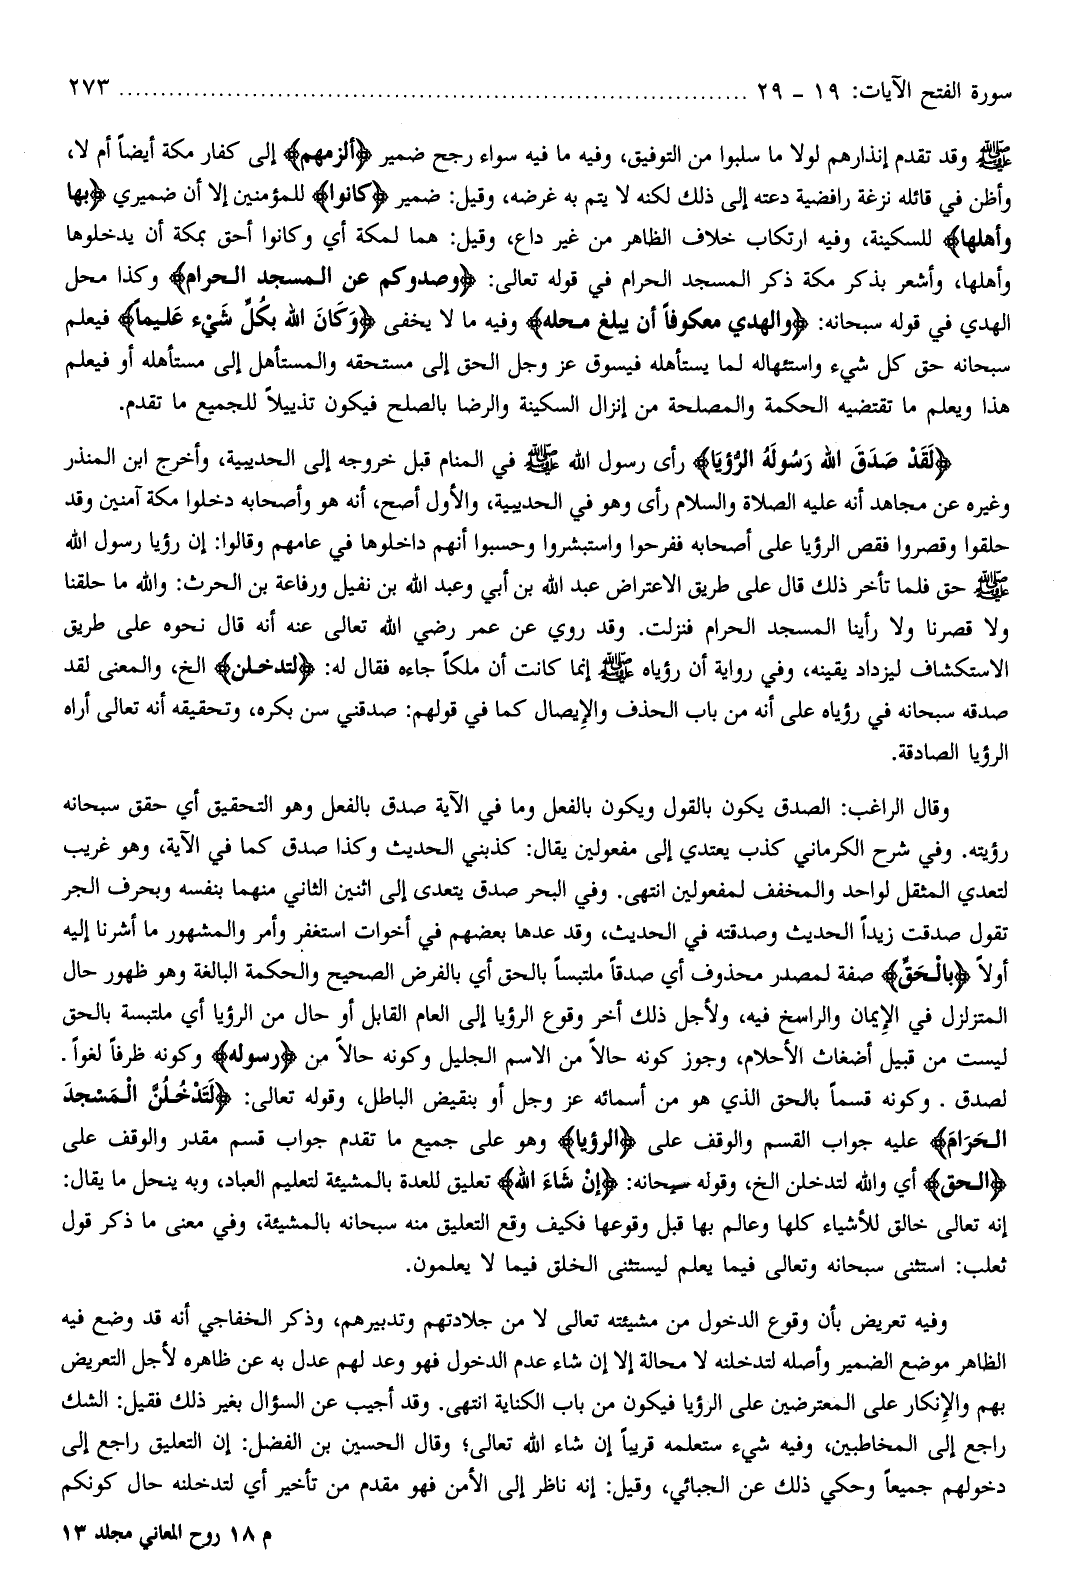 سورة الفتح الآيات: ١٩ - ٢٩ ........................................................................... ٢٧٣
ﷺ وقد تقدم إنذارهم لولا ما سلبوا من التوفيق، وفيه ما فيه سواء رجح ضمير ﴿ألزمهم﴾ إلى كفار مكة أيضاً أم لا،
وأظن في قائله نزغة رافضية دعته إلى ذلك لكنه لا يتم به غرضه، وقيل: ضمير ﴿كانوا﴾ للمؤمنين إلا أن ضميري ﴿بها
وأهلها﴾ للسكينة، وفيه ارتكاب خلاف الظاهر من غير داع، وقيل: هما لمكة أي وكانوا أحق بمكة أن يدخلوها
وأهلها، وأشعر بذكر مكة ذكر المسجد الحرام في قوله تعالى: ﴿وصدوكم عن المسجد الحرام﴾ وكذا محل
الهدي في قوله سبحانه: ﴿والهدي معكوفاً أن يبلغ محله﴾ وفيه ما لا يخفى ﴿وَكَانَ الله بكُلِّ شَيْء عَليماً﴾ فيعلم
سبحانه حق كل شيء واستئهاله لما يستأهله فيسوق عز وجل الحق إلى مستحقه والمستأهل إلى مستأهله أو فيعلم
هذا ويعلم ما تقتضيه الحكمة والمصلحة من إنزال السكينة والرضا بالصلح فيكون تذييلاً للجميع ما تقدم.
﴿لَقَدْ صَدَقَ الله رَسُولَهُ الرُّؤيَا﴾ رأى رسول الله ﷺ في المنام قبل خروجه إلى الحديبية، وأخرج ابن المنذر
وغيره عن مجاهد أنه عليه الصلاة والسلام رأى وهو في الحديبية، والأول أصح، أنه هو وأصحابه دخلوا مكة آمنين وقد
حلقوا وقصروا فقص الرؤيا على أصحابه ففرحوا واستبشروا وحسبوا أنهم داخلوها في عامهم وقالوا: إن رؤيا رسول الله
ﷺ حق فلما تأخر ذلك قال على طريق الاعتراض عبد الله بن أبي وعبد الله بن نفيل ورفاعة بن الحرث: والله ما حلقنا
ولا قصرنا ولا رأينا المسجد الحرام فنزلت. وقد روي عن عمر رضي الله تعالى عنه أنه قال نحوه على طريق
الاستكشاف ليزداد يقينه، وفي رواية أن رؤياه ﷺ إنما كانت أن ملكاً جاءه فقال له: ﴿لتدخلن﴾ الخ، والمعنى لقد
صدقه سبحانه في رؤياه على أنه من باب الحذف والإيصال كما في قولهم: صدقني سن بكره، وتحقيقه أنه تعالى أراه
الرؤيا الصادقة.
وقال الراغب: الصدق يكون بالقول ويكون بالفعل وما في الآية صدق بالفعل وهو التحقيق أي حقق سبحانه
رؤيته. وفي شرح الكرماني كذب يعتدي إلى مفعولين يقال: كذبني الحديث وكذا صدق كما في الآية، وهو غريب
لتعدي المثقل لواحد والمخفف لمفعولين انتهى. وفي البحر صدق يتعدى إلى اثنين الثاني منهما بنفسه وبحرف الجر
تقول صدقت زيداً الحديث وصدقته في الحديث، وقد عدها بعضهم في أخوات استغفر وأمر والمشهور ما أشرنا إليه
أولاً ﴿بالْحَقِّ﴾ صفة لمصدر محذوف أي صدقاً ملتبساً بالحق أي بالفرض الصحيح والحكمة البالغة وهو ظهور حال
المتزلزل في الإيمان والراسخ فيه، ولأجل ذلك أخر وقوع الرؤيا إلى العام القابل أو حال من الرؤيا أي ملتبسة بالحق
ليست من قبيل أضغاث الأحلام، وجوز كونه حالاً من الاسم الجليل وكونه حالاً من ﴿رسوله﴾ وكونه ظرفاً لغواً .
لصدق . وكونه قسماً بالحق الذي هو من أسمائه عز وجل أو بنقيض الباطل، وقوله تعالى: ﴿لَتَدْخُلُنَّ الْمَسْجدَ
الحَرَامَ﴾ عليه جواب القسم والوقف على ﴿الرؤيا﴾ وهو على جميع ما تقدم جواب قسم مقدر والوقف على
﴿الحق﴾ أي والله لتدخلن الخ، وقوله سبحانه: ﴿إنْ شَاءَ الله﴾ تعليق للعدة بالمشيئة لتعليم العباد، وبه ينحل ما يقال:
إنه تعالى خالق للأشياء كلها وعالم بها قبل وقوعها فكيف وقع التعليق منه سبحانه بالمشيئة، وفي معنى ما ذكر قول
ثعلب: استثنى سبحانه وتعالى فيما يعلم ليستثنى الخلق فيما لا يعلمون.
وفيه تعريض بأن وقوع الدخول من مشيئته تعالى لا من جلادتهم وتدبيرهم، وذكر الخفاجي أنه قد وضع فيه
الظاهر موضع الضمير وأصله لتدخلنه لا محالة إلا إن شاء عدم الدخول فهو وعد لهم عدل به عن ظاهره لأجل التعريض
بهم والإنكار على المعترضين على الرؤيا فيكون من باب الكناية انتهى. وقد أجيب عن السؤال بغير ذلك فقيل: الشك
راجع إلى المخاطبين، وفيه شيء ستعلمه قريباً إن شاء الله تعالى؛ وقال الحسين بن الفضل: إن التعليق راجع إلى
دخولهم جميعاً وحكي ذلك عن الجبائي، وقيل: إنه ناظر إلى الأمن فهو مقدم من تأخير أي لتدخلنه حال كونكم
م ١٨ روح المعاني مجلد ١٣